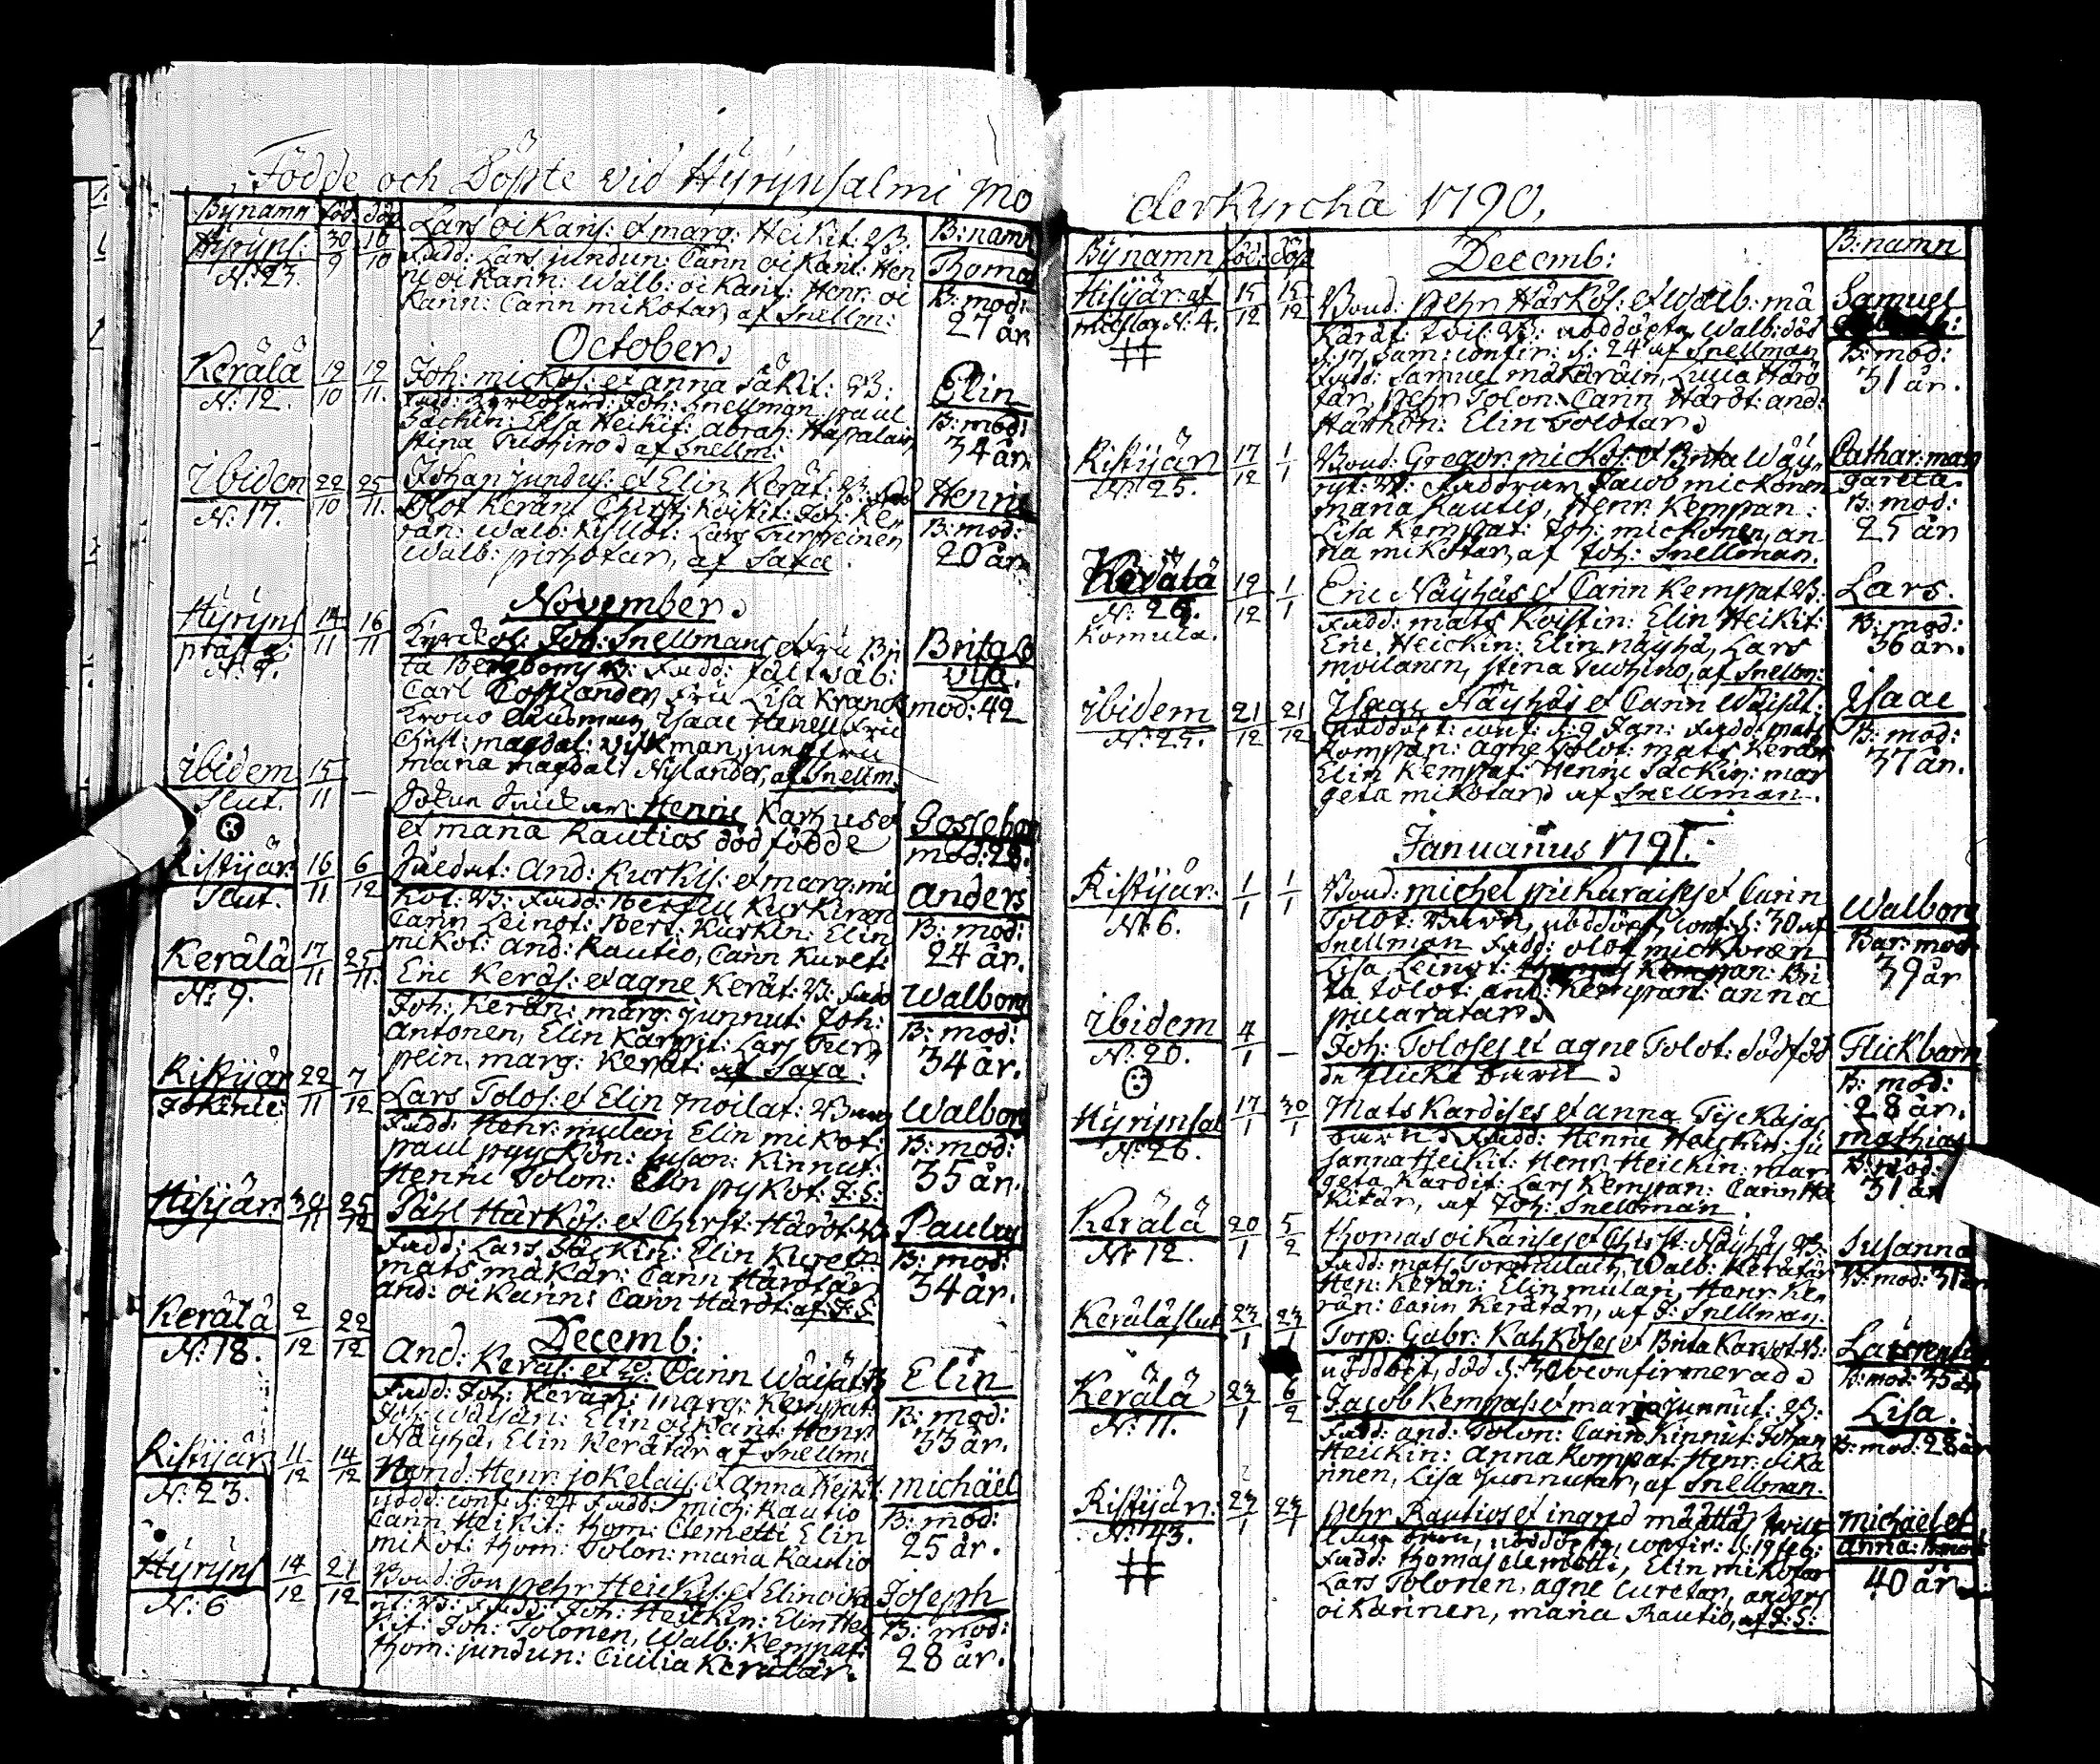 Födde och Döpte vid Hyrynsalmi Mo
Bynamn föd: döp B:namn
Hyryns: N:23. 30/9 10/10
Lars oikaris: et marg: Heikit: B:
Fadd: Lars jundun: Carin oikarit: Hen
ric oikarin: Walb: oikarit: Henr: oi
karin: Carin mikotar, af Snellm:
Thomas
B: mod:
27 år
October
Kerälä N:12. 19/10 19/11.
Joh: mickos: et anna säkit: B:
Joh: Snellman paul
Säckin: Elsa Heikit: abrah: Hapalain
stina af Snellm:
Elin
B: mod:
34 år
ibidem N:17. 22/10 25/11.
Johan jundus: et Elin Kerät: B:
Olof Kerän: Christ: Koistit: Joh: Ke
rän: Walb: Lars Turpeinen
Walb: af Saxa.
Henric
B: mod:
20 år
November
Hyryns 14/11 16/11
Joh: Snellmans et fru Bri
ta Bergboms B: Fadd:
Carl fru Lisa Kranck
Isaac
Christ: magdal: wikman, jungfru
maria magdal: Nylander, af Snellm.
Brita
mod: 42
ibidem slut. 15/11 —
Henric Karhuset
et maria Rautios död födde
Gossebarn
mod: 28.
Ristijär: slut. 16/11 6/12
And: Kurkis: et marg: mi
kot: B: Fadd: Kurkinen
Carin Leinot: Bert: Kurkin: Elin
mikot: and: Rautio, Carin Kuret:
anders
B: mod:
24 år.
Kerälä N:9. 17/11 25/11.
Eric Keräs: et agne Kerät: B: Fadd
Joh: Kerän: marg: junnut: Joh:
Antonen, Elin Lars Tur
pein, marg: Kerät: af Saxa.
Walborg
B: mod:
34 år.
Ristijär 22/11 7/12
Lars Tolos: et Elin moilat:
Fadd: Henr: mulari Elin mikot:
paul pyyckön: susan: Kinnut:
Henric Tolon: Elin pykot: J: S:
Walborg
B: mod:
35 år.
Hisijär 30/11 25/12
Påhl Härkös: et Christ: Häröt: B:
Fadd: Lars Säckin: Elin Kuret:
mats mäkär: Carin Härötär
and: oikarin: Carin Häröt: af: J: S:
Paulus
B: mod:
34 år.
Decemb:
Kerälä N:18. 2/12 22/12
And: Keräs: et Carin Wäisät: B
Fadd: Joh: Kerän: marg: Kempat:
Joh: Wäisän: Elin oikarit: Henr
Näyhä, Elin Kerätär af Snellm:
Elin
B: mod:
33 år.
Ristijär N:23. 11/12 14/12
Henr: jokelais: et Anna Heikit:
nöddö: conf: d: 24 Fadd: mich: Rautio
Carin Heikit: thom: Clemetti Elin
mikot: thom: Tolon: maria Rautio
michäel
B: mod:
25 år.
Hyryns N:6 14/12 21/12
Bond: Son pehr Heickis: et Elin oika
rit: B: Fadd: Joh: Heickin: Elin Hei
kit: Joh: Tolonen, Walb: Kempat:
thom: jundun: Cicilia Kerätär.
Joseph
B: mod:
28 år.
derkyrcka 1790,
Bynamn föd: döp B:namn
Decemb:
Hisijär: N:4. 15/12 15/12
#
Bond: pehr Härkös: et Walb: mä
kärät: nöddöpta, Walb: död
Sam: confir: d: 24 af Snellman
Fadd: Samuel mäkäräin, Lucia Härö
tär, pehr Tolon: Carin Häröt: and:
Härkön: Elin Tolotar
Samuel
B: mod:
31 år.
Ristijär N:25. 17/12 1/1
Bond: Gregor: mickos: et Brita Wäy
ryt: B: Faddrar Jacob mickonen
maria Rautio, Henr: Kempan:
Lisa Kempat: Joh: mickonen, an
na mikotar, af Joh: Snellman.
Cathar: mar
gareta.
B: mod:
25 år
Kerälä N:26. Komula. 19/12 1/1
Eric Näyhäs et Carin Kempat B:
Fadd: mats Koistin: Elin Heikit:
Eric Heickin: Elin näyhä, Lars
moilanen, stina af Snellm:
Lars.
B: mod:
36 år.
ibidem 21/12 21/12
Isaac Näyhäs et Carin Wäisät:
nöddöpt: conf: d: 9 Jan: Fadd: mats
Kempan: agne Tolot: mats Kerän:
Elin Kempat: Henric Säckin: mar
geta mikotar af Snellman.
Isaac
B: mod:
37 år.
Januarius 1791.
Ristijär: N:6. 1/1 1/1
Bond: michel pickaraises et Carin
Tolot: barn, nöddöpt, conf: d: 30 af
Snellman Fadd: olof mickonen
Lisa Leinot: Kempan: Bri
ta Tolot: and: Kempan: anna
Walborg
Bar: mod:
39 år
ibidem N:20. 4/1 —
Joh: Toloses et agne Tolot: dödföd
de flicke barn
Flickbarn
B: mod:
28 år.
Hyrynsal N:26. 17/1 30/1
Mats Kardises et anna
barn Fadd: Henric Heickin: su
sanna Heikit: Henr: Heickin: mar
geta Kardit: Lars Kempan: Carin He
kitar, af Joh: Snellman.
mathias
B: mod:
31 år
Kerälä N:12. 20/1 5/2
thomas oikarises et Christ: Näyhäs B:
Fadd: mats Walb: Kerätär
Hen: Kerän: Elin mulari, Henr: Ke
rän: Carin Kerätär, af J: Snellman.
Susanna
B: mod: 31 år
Kerälä slut 23/1 23/1
Torp: Gabr: Kahköses et Brita B:
nöddöpt, död d: 30 oconfirmerad
Laurentius
B: mod: 35 år
Kerälä N:11. 23/1 6/2
Jacob Kempas: et marja junnut: B:
Fadd: and: Tolon: Carin Kinnut: Johan
Heickin: Anna Kempat: Henr: oika
rinen, Lisa junnutar, af Snellman.
Lisa.
B: mod: 28 år
Ristijär: N:43. 23/1 23/1
#
pehr Rautios et ingrid määttä
nöddöpta, confir: d: 19 feb:
Fadd: thomas clemetti, Elin mikotar
Lars Tolonen, agne Curetar, anders
oikarinen, maria Rautio, af J: S:
michäel et
anna: B: mod:
40 år